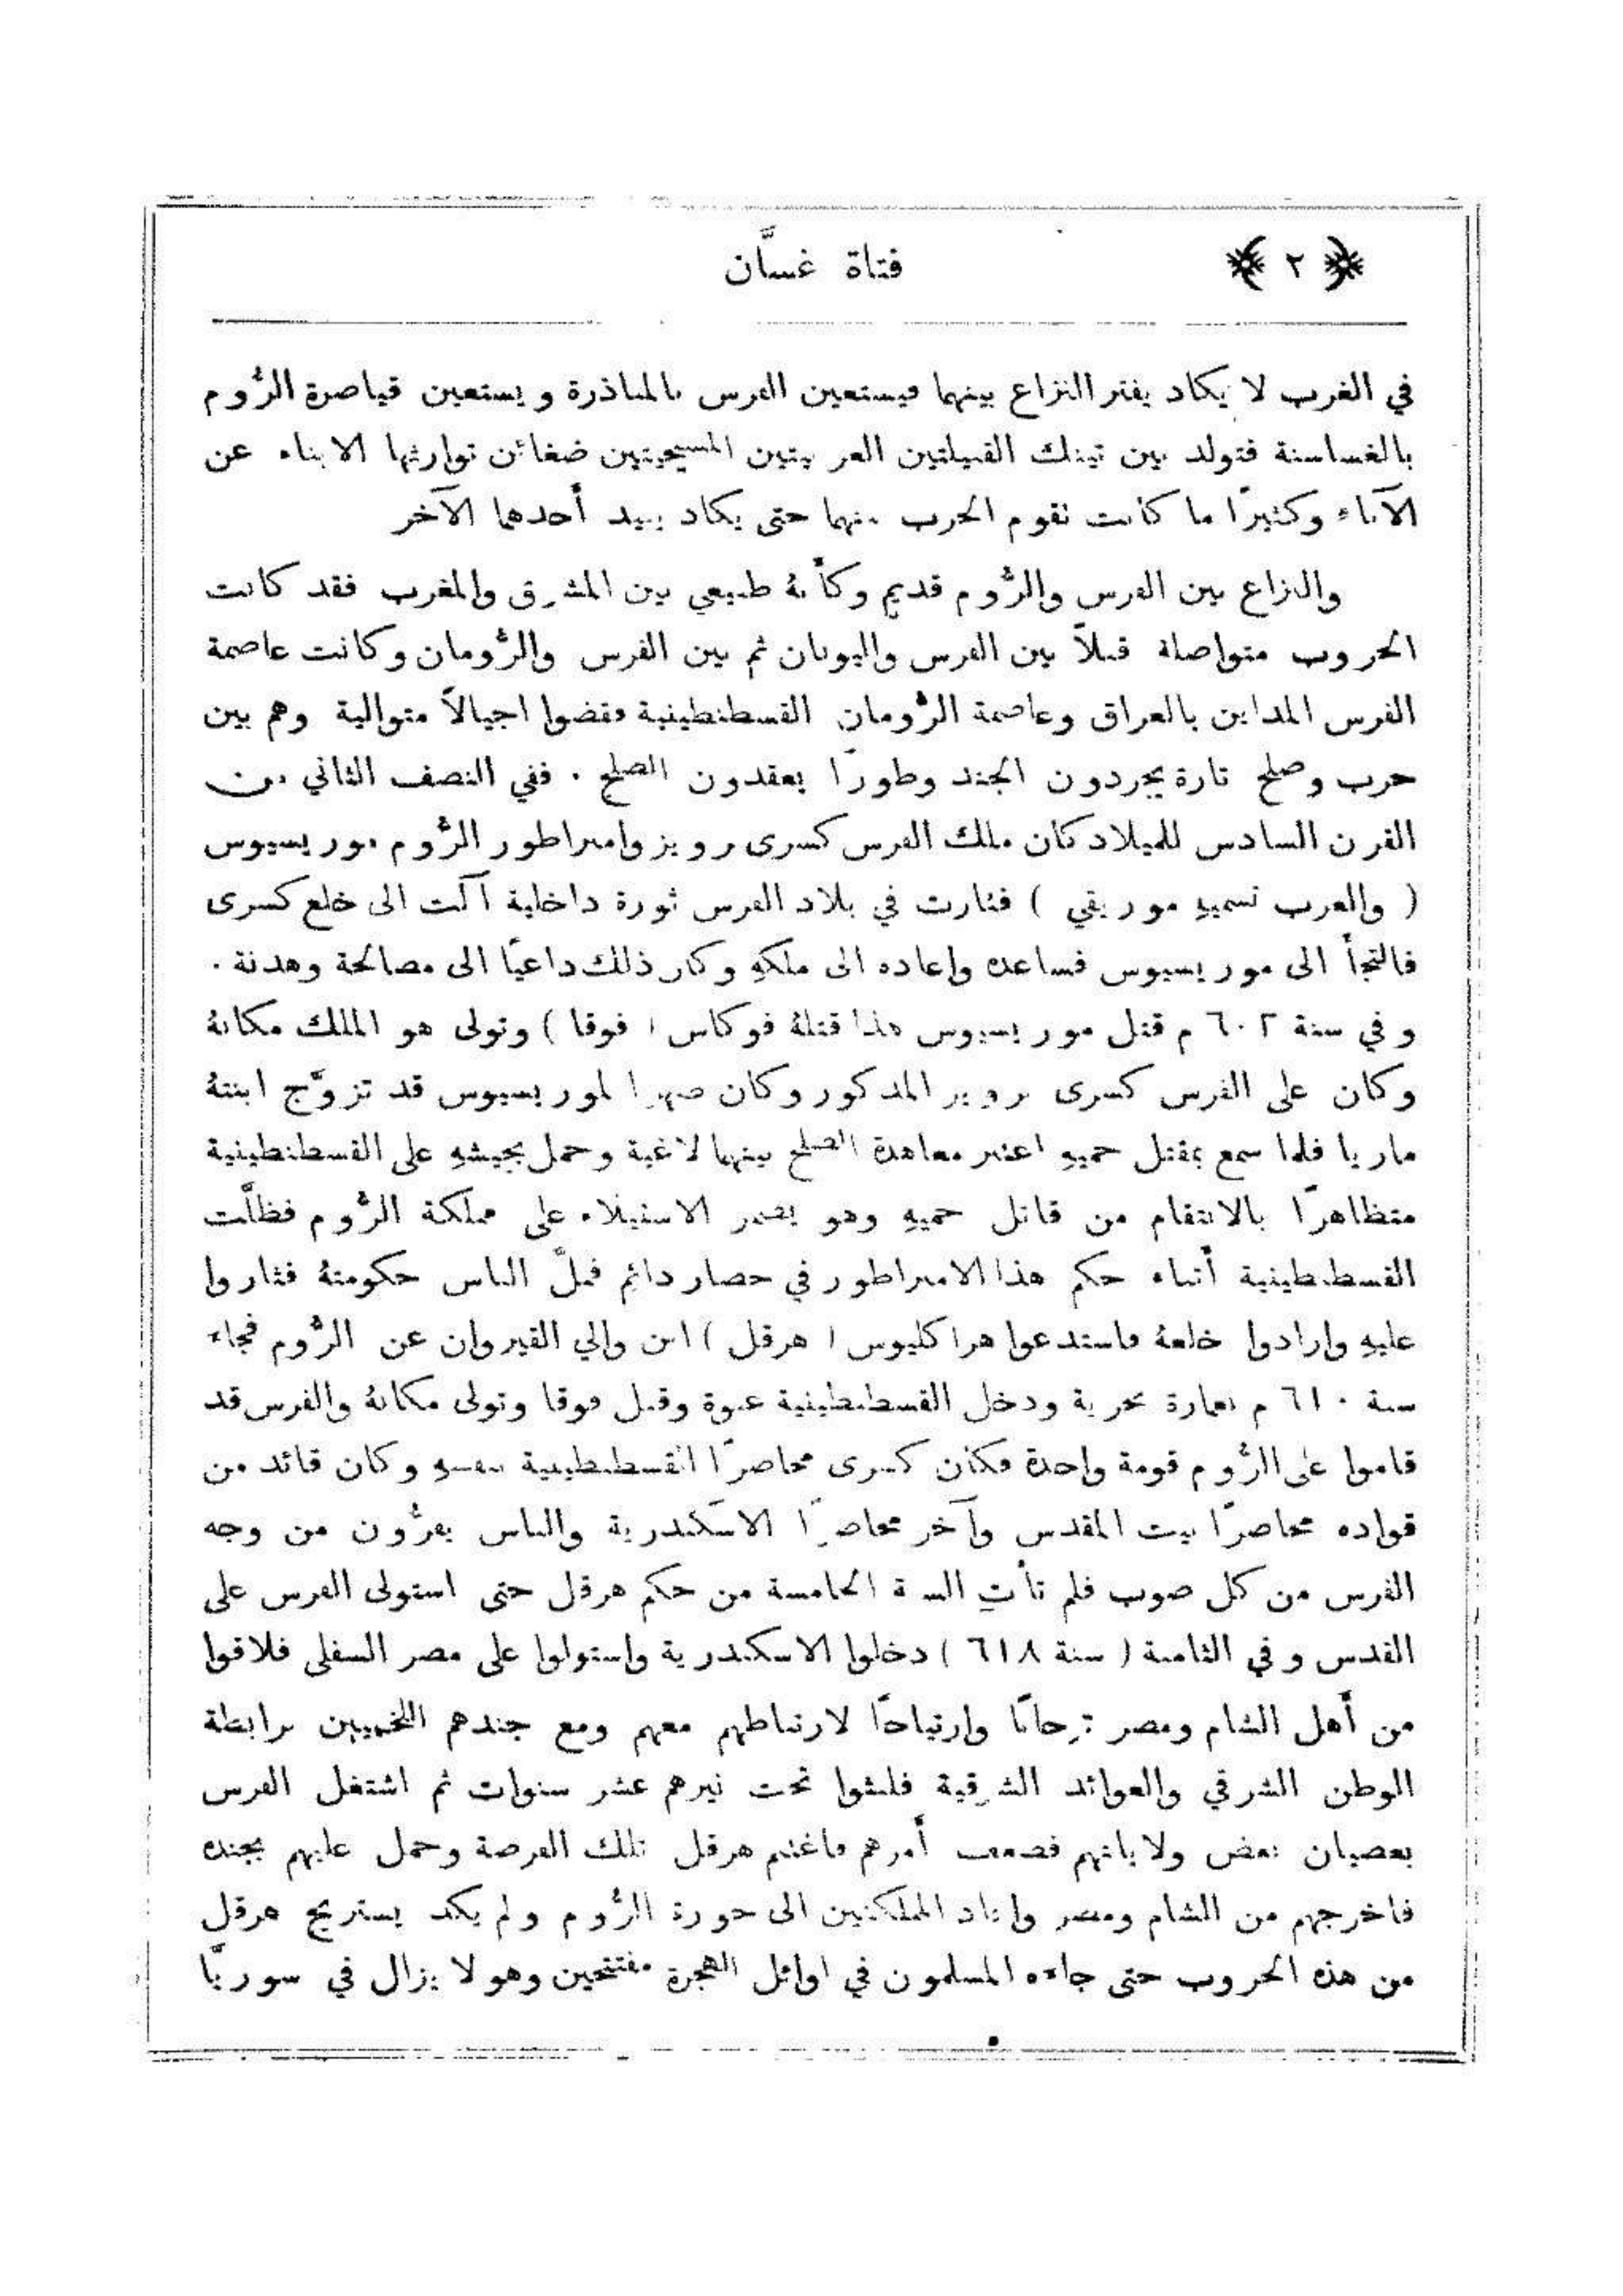 ﴿ ٢ ﴾ فتاة غسَّان
في الغرب لا يكاد يفتر النزاع بينهما فيستعين الفرس بالمناذرة ويستعين قياصرة الرُّوم
بالغساسنة فتولد بين تينك القبيلتين العربيتين المسيحيتين ضغائن توارثها الابناء عن
الآباء وكثيرًا ما كانت تقوم الحرب بينهما حتى يكاد يبيد أحدهما الآخر
والنزاع بين الفرس والرُّوم قديم وكأنهُ طبيعي بين المشرق والمغرب فقد كانت
الحروب متواصلة قبلاً بين الفرس واليونان ثم بين الفرس والرُّومان وكانت عاصمة
الفرس المداين بالعراق وعاصمة الرُّومان القسطنطينية فقضوا اجيالاً متوالية وهم بين
حرب وصلح تارة يجردون الجند وطورًا يعقدون الصلح . ففي النصف الثاني من
القرن السادس للميلاد كان ملك الفرس كسرى برويز وامبراطور الرُّوم موريسيوس
( والعرب تسميهِ موريقي ) فثارت في بلاد الفرس ثورة داخلية آلت الى خلع كسرى
فالتجأ الى موريسيوس فساعده واعاده الى ملكهِ وكان ذلك داعيًا الى مصالحة وهدنة .
وفي سنة ٦٠٢ م قتل موريسيوس هذا قتلهُ فوكاس ( فوقا ) وتولى هو الملك مكانهُ
وكان على الفرس كسرى برويز المذكور وكان صهرا لموريسيوس قد تزوَّج ابنتهُ
ماريا فلما سمع بمقتل حميهِ اعتبر معاهدة الصلح بينهما لاغية وحمل بجيشهِ على القسطنطينية
متظاهرًا بالانتقام من قاتل حميهِ وهو يضمر الاستيلاء على مملكة الرُّوم فظلَّت
القسطنطينية أثناء حكم هذا الامبراطور في حصار دائم فملَّ الناس حكومتهُ فثاروا
عليهِ وارادوا خلعهُ فاستدعوا هراكليوس ( هرقل ) ابن والي القيروان عن الرُّوم فجاء
سنة ٦١٠ م بعمارة بحرية ودخل القسطنطينية عنوة وقتل فوقا وتولى مكانهُ والفرس قد
قاموا على الرُّوم قومة واحدة فكان كسرى محاصرًا القسطنطينية بنفسهِ وكان قائد من
قواده محاصرًا بيت المقدس وآخر محاصرًا الاسكندرية والناس يفرُّون من وجه
الفرس من كل صوب فلم تأتِ السنة الخامسة من حكم هرقل حتى استولى الفرس على
القدس وفي الثامنة ( سنة ٦١٨ ) دخلوا الاسكندرية واستولوا على مصر السفلى فلاقوا
من أهل الشام ومصر ترحابًا وارتياحًا لارتباطهم معهم ومع جندهم اللخميين برابطة
الوطن الشرقي والعوائد الشرقية فلبثوا تحت نيرهم عشر سنوات ثم اشتغل الفرس
بعصيان بعض ولاياتهم فضعف أمرهم فاغتنم هرقل تلك الفرصة وحمل عليهم بجنده
فاخرجهم من الشام ومصر واعاد المملكتين الى حوزة الرُّوم ولم يكد يستريح هرقل
من هذه الحروب حتى جاءه المسلمون في اوائل الهجرة مفتتحين وهو لا يزال في سوريَّا